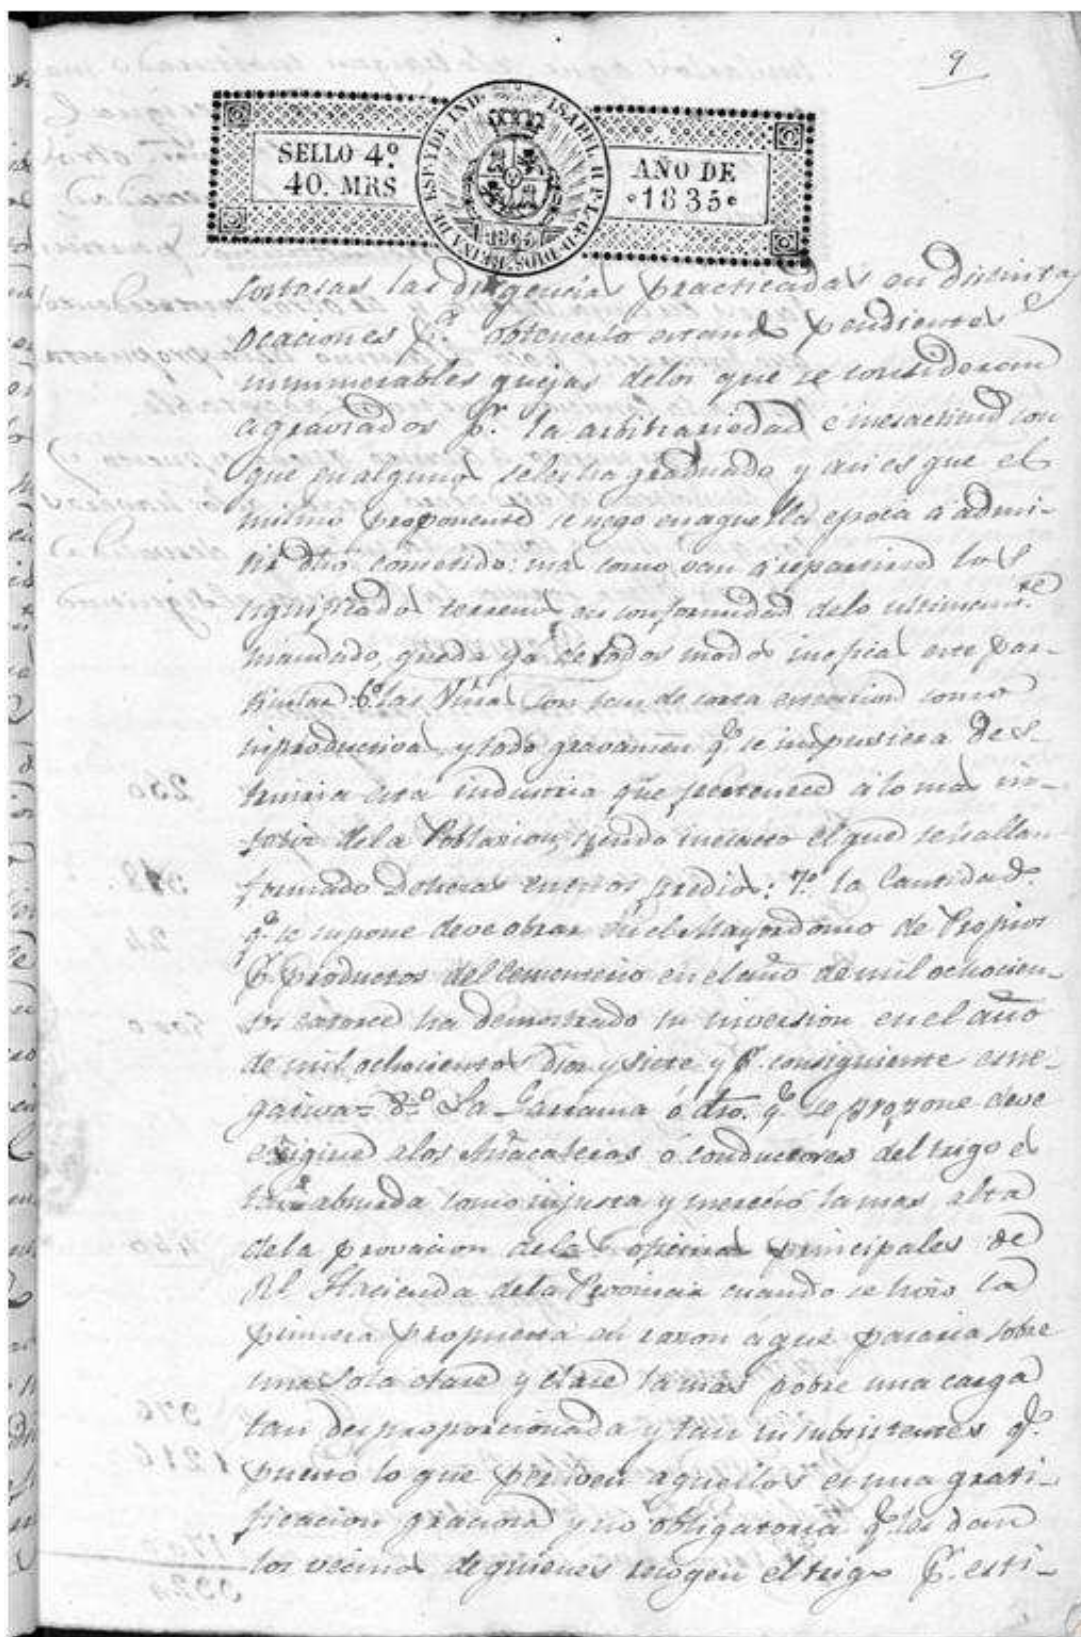 9
SELLO 4º
40. MRS
ISABEL II P. L. G. D. DIOS REINA DE ESP. Y DE IND.
1835
AÑO DE
1835
las diligencias practicadas en distintas
ocaciones pª. obtenerlo estando pendientes
innumerables quejas delos que se consideran
agraviados pr. la arbitrariedad é inesactitud con
que en algunos seles ha graduado y asi es que el
mismo proponente se nego en aquella epoca a admi-
tir dho cometido: mas como van á repartirse los
significados terrenos en conformidad delo ultimamte.
mandado, queda ya de todos modos ineficas este par-
ticular. 6º. las Viñas son tan de corta estencion como
inproductivas, y todo gravamen qe. se impusiera des-
truiria esta industria que pertenece a lo mas in-
felix dela Poblacion, siendo inexacto el que se hallan
formado Dehesas en esos predios: 7º. la Cantidad
qe. se supone deve obrar en el Mayordomo de Propios
pr. productos del Cementerio en el año de mil ochocien-
tos catorce ha demostrado su inversion en el año
de mil ochocientos dies y siete y pr. consiguiente es ne-
gativa = 8º. La Garrama ó dro. qe. se propone deve
exigirse alos ó conductores del trigo es
tan absurda como injusta y mereció la mas alta
de la provacion delas oficinas principales de
Rl. Hacienda dela Provincia cuando se hizo la
primera propuesta en razon á que pararia sobre
una sola clase y clase la mas pobre una carga
tan desproporcionada y tan insubsistente qe.
puesto lo que perciven aquellos es una grati-
ficacion graciosa y no obligatoria qe. les dan
los vecinos de quienes recogen el trigo pr. esti-